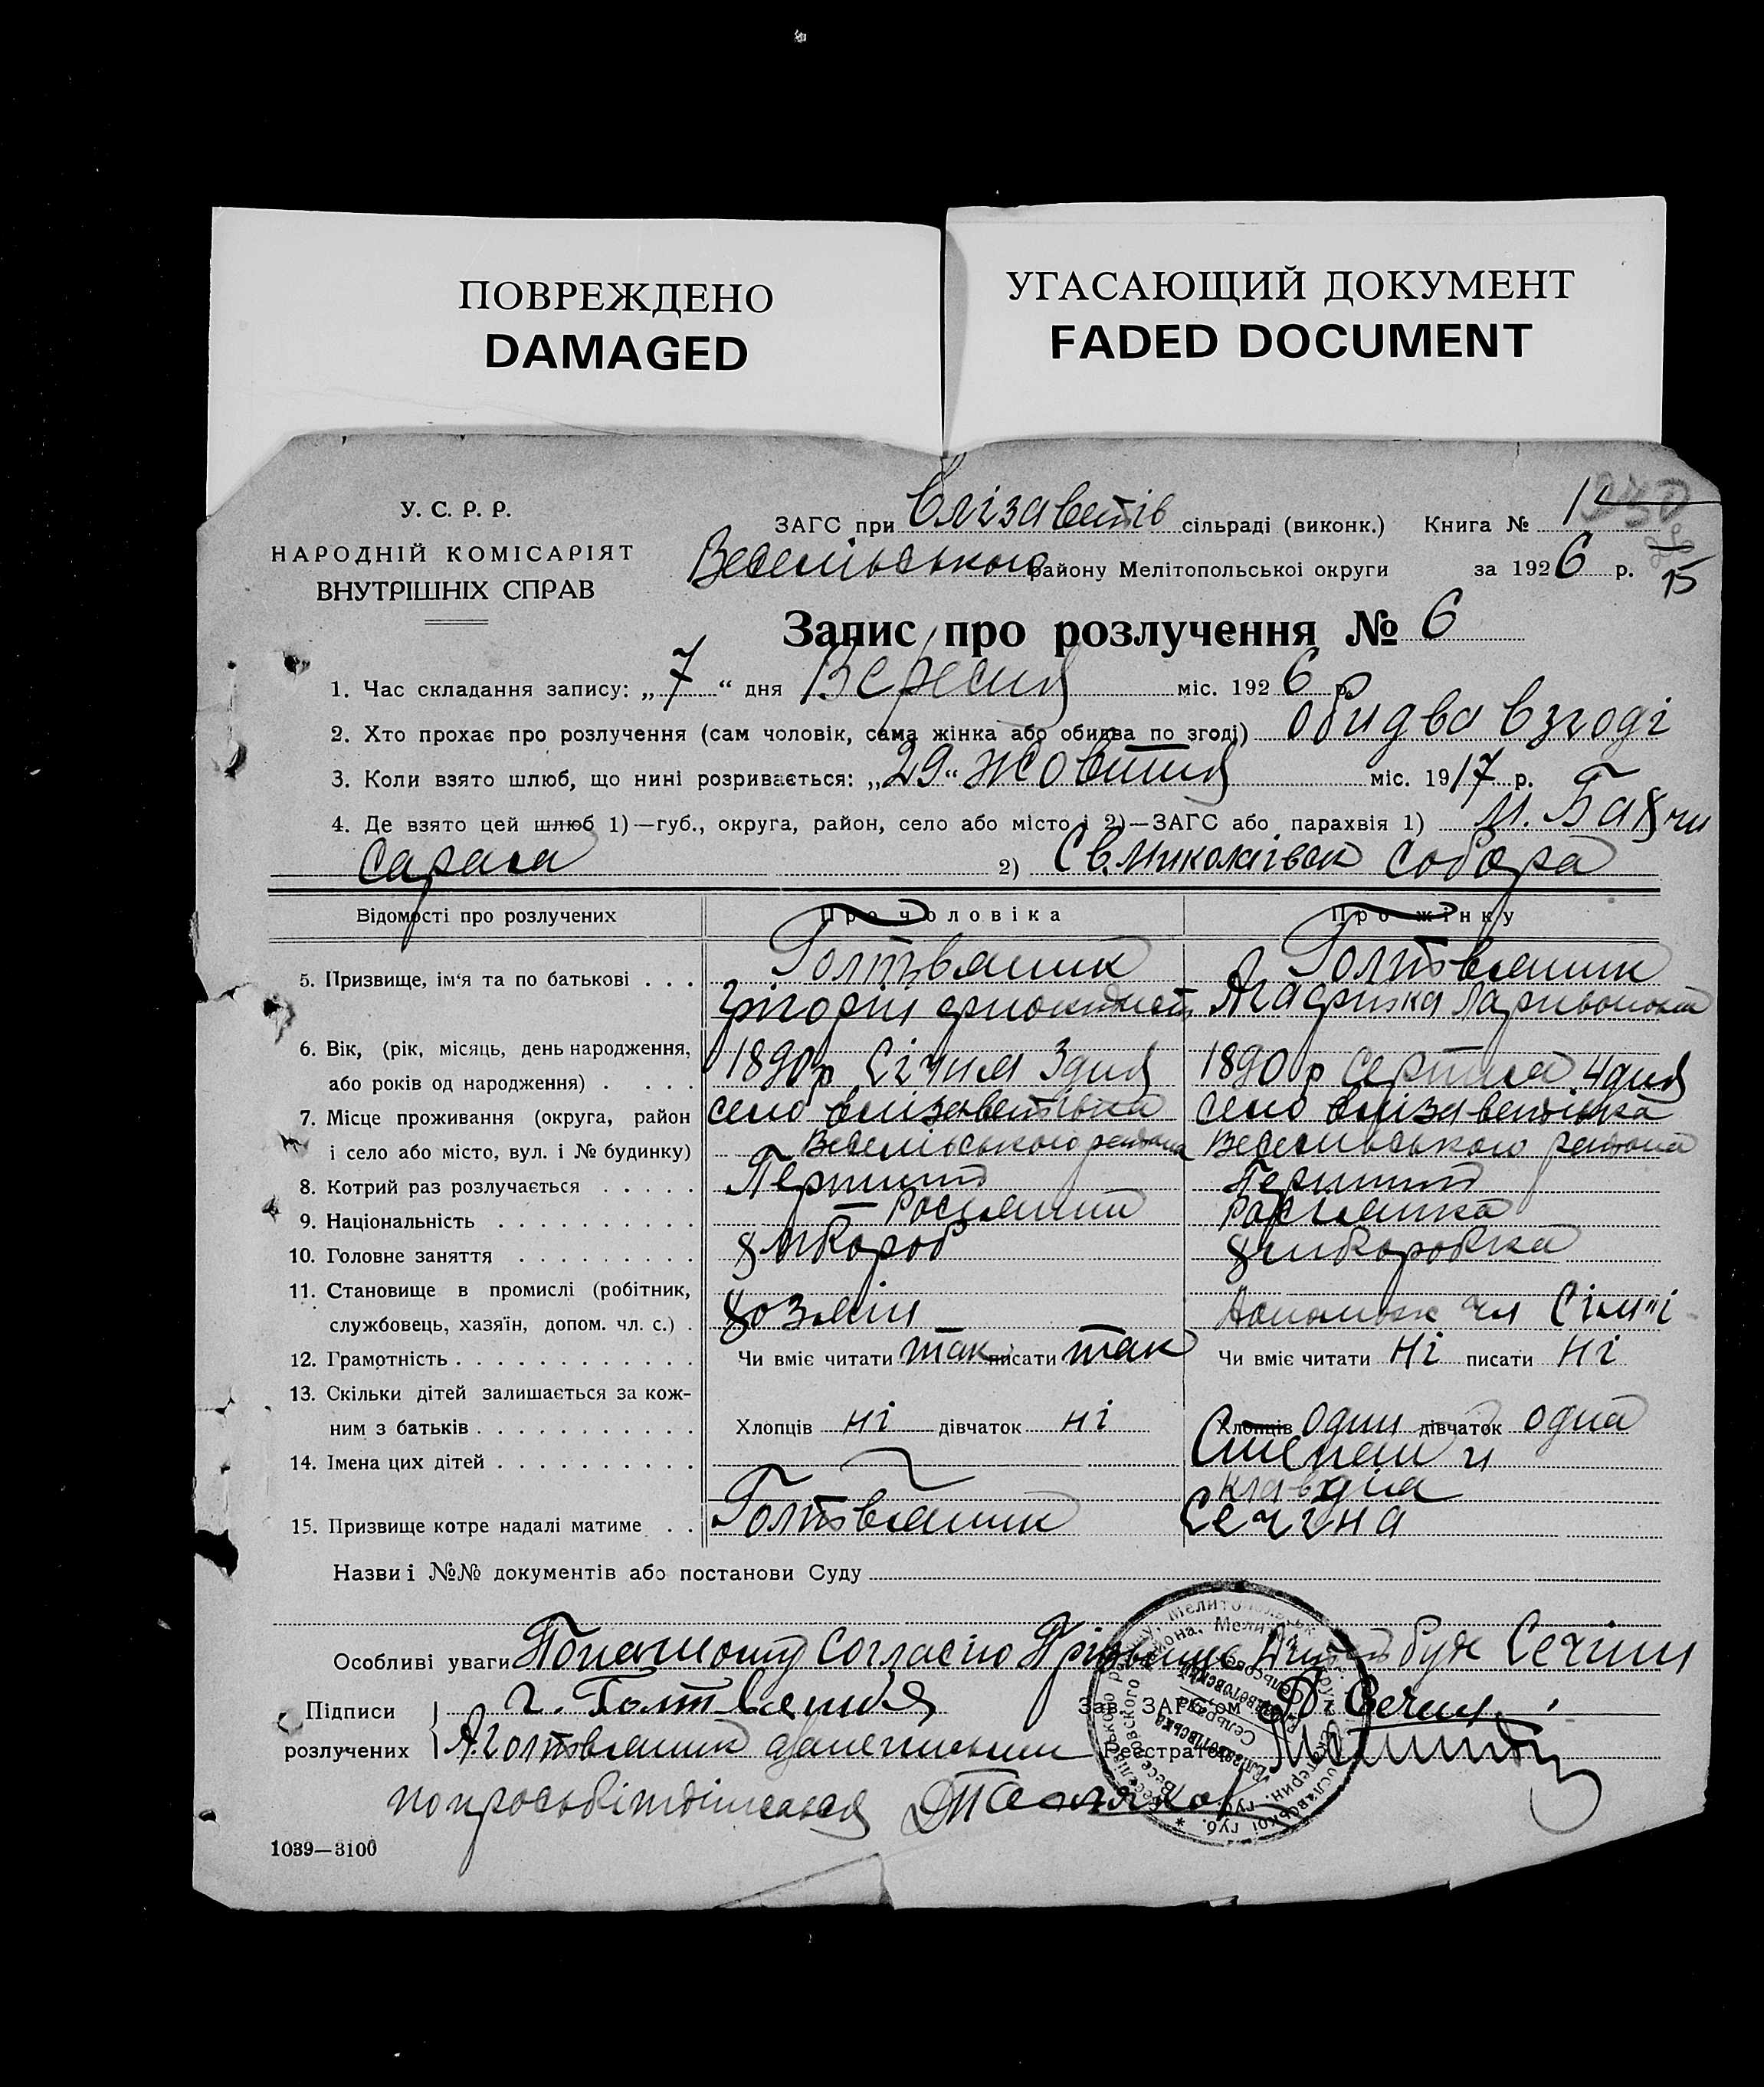 ПОВРЕЖДЕНО
DAMAGED
УГАСАЮЩИЙ ДОКУМЕНТ
FADED DOCUMENT
У. С. Р. Р.
НАРОДНІЙ КОМІСАРІЯТ
ВНУТРІШНІХ СПРАВ
ЗАГС при Єлізаветів сільраді (виконк.) Книга № 1
Веселівського району Мелітопольської округи за 1926 р.
15
Запис про розлучення № 6
1. Час складання запису: „7“ дня Вересня міс. 1926 р.
2. Хто прохає про розлучення (сам чоловік, сама жінка або обидва по згоді) обидва взгоді
3. Коли взято шлюб, що нині розривається: „29“ жовтня міс. 1917 р.
4. Де взято цей шлюб 1)—губ., округа, район, село або місто і 2)—ЗАГС або парахвія 1) м. Бахчи
Сарая 2) Св. Миколаївск собора
Відомості про розлучених Про чоловіка Про жінку
5. Призвище, ім'я та по батькові . . . Голтвяник Голтвяник
Грігорій Агафика
6. Вік, (рік, місяць, день народження,
або років од народження) . . . . 1890 р Січня 3 дня 1890 р Серпня 4 дня
7. Місце проживання (округа, район село Єлізаветівка село Єлізаветівка
і село або місто, вул. і № будинку) Веселівського района Веселівського района
8. Котрий раз розлучається . . . . . Перший Перший
9. Національність . . . . . . . . . . Росіянин Росіянка
10. Головне заняття . . . . . . . . . хлібороб хліборобка
11. Становище в промислі (робітник,
службовець, хазяїн, допом. чл. с.) . хозяїн допомож чл Сім'ї
12. Грамотність . . . . . . . . . . . . Чи вміє читати так писати так Чи вміє читати ні писати ні
13. Скільки дітей залишається за кож-
ним з батьків . . . . . . . . . . . Хлопців ні дівчаток ні Хлопців один дівчаток одна
14. Імена цих дітей . . . . . . . . . . Степан и
Клавдіа
15. Призвище котре надалі матиме . . Голтвяник Сечіна
Назви і №№ документів або постанови Суду
Особливі уваги По нашому Согласію буде Сечіни
Підписи розлучених
Г. Голтвяник Зав. ЗАГС'ом Сечин
А. Голтвяник Реєстратор
по просьбі
1039—3100